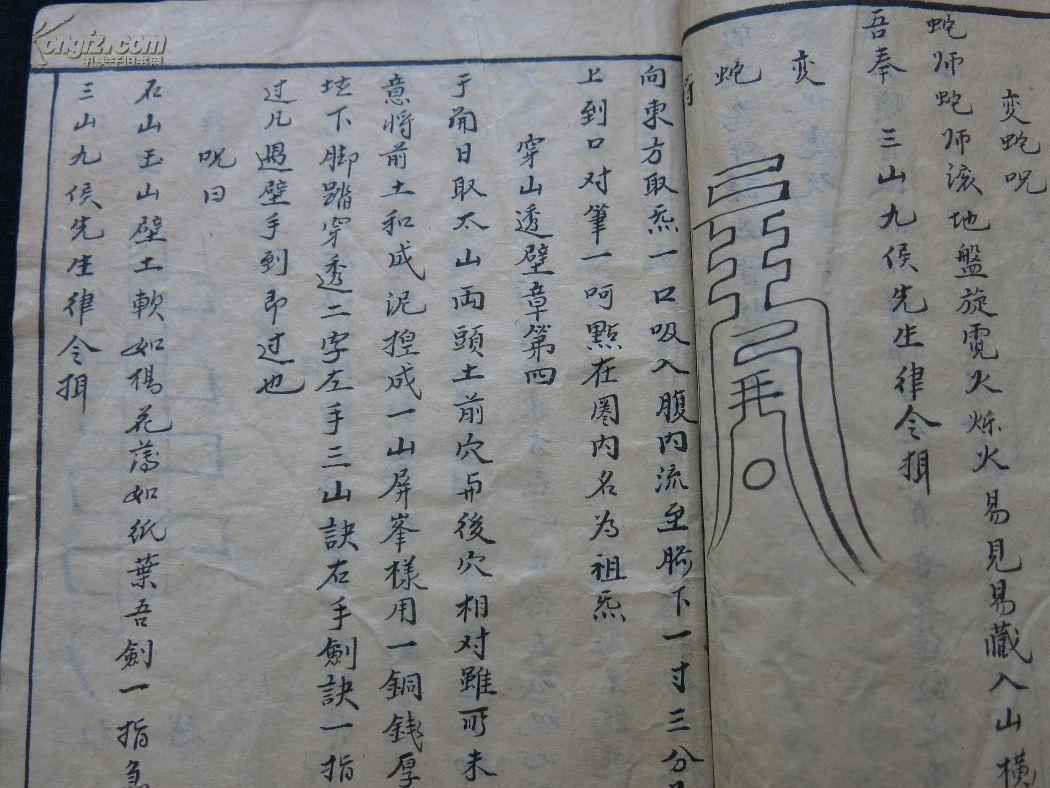 变蛇咒
蛇师蛇师滚地盤旋霓火烁火易見易藏入山横
吾奉 三山九侯先生律令揖
变蛇符
再
向東方取炁一口吸入腹内流至脐下一寸三分
上到口对筆一呵點在圈内名为祖炁
穿山透壁章第四
于 日取太山両頭土前穴与後穴相对雖 未
意将前土和成泥揑成一山屏峯樣用一銅銭厚
下脚踏穿透二字左手三山訣右手劍訣一指
过凡遇壁手到即过也
咒曰
石山玉山壁土軟如楊花薄如纸葉吾劍一指急
三山九侯先生律令揖
Kongfz.com
孔夫子旧书网